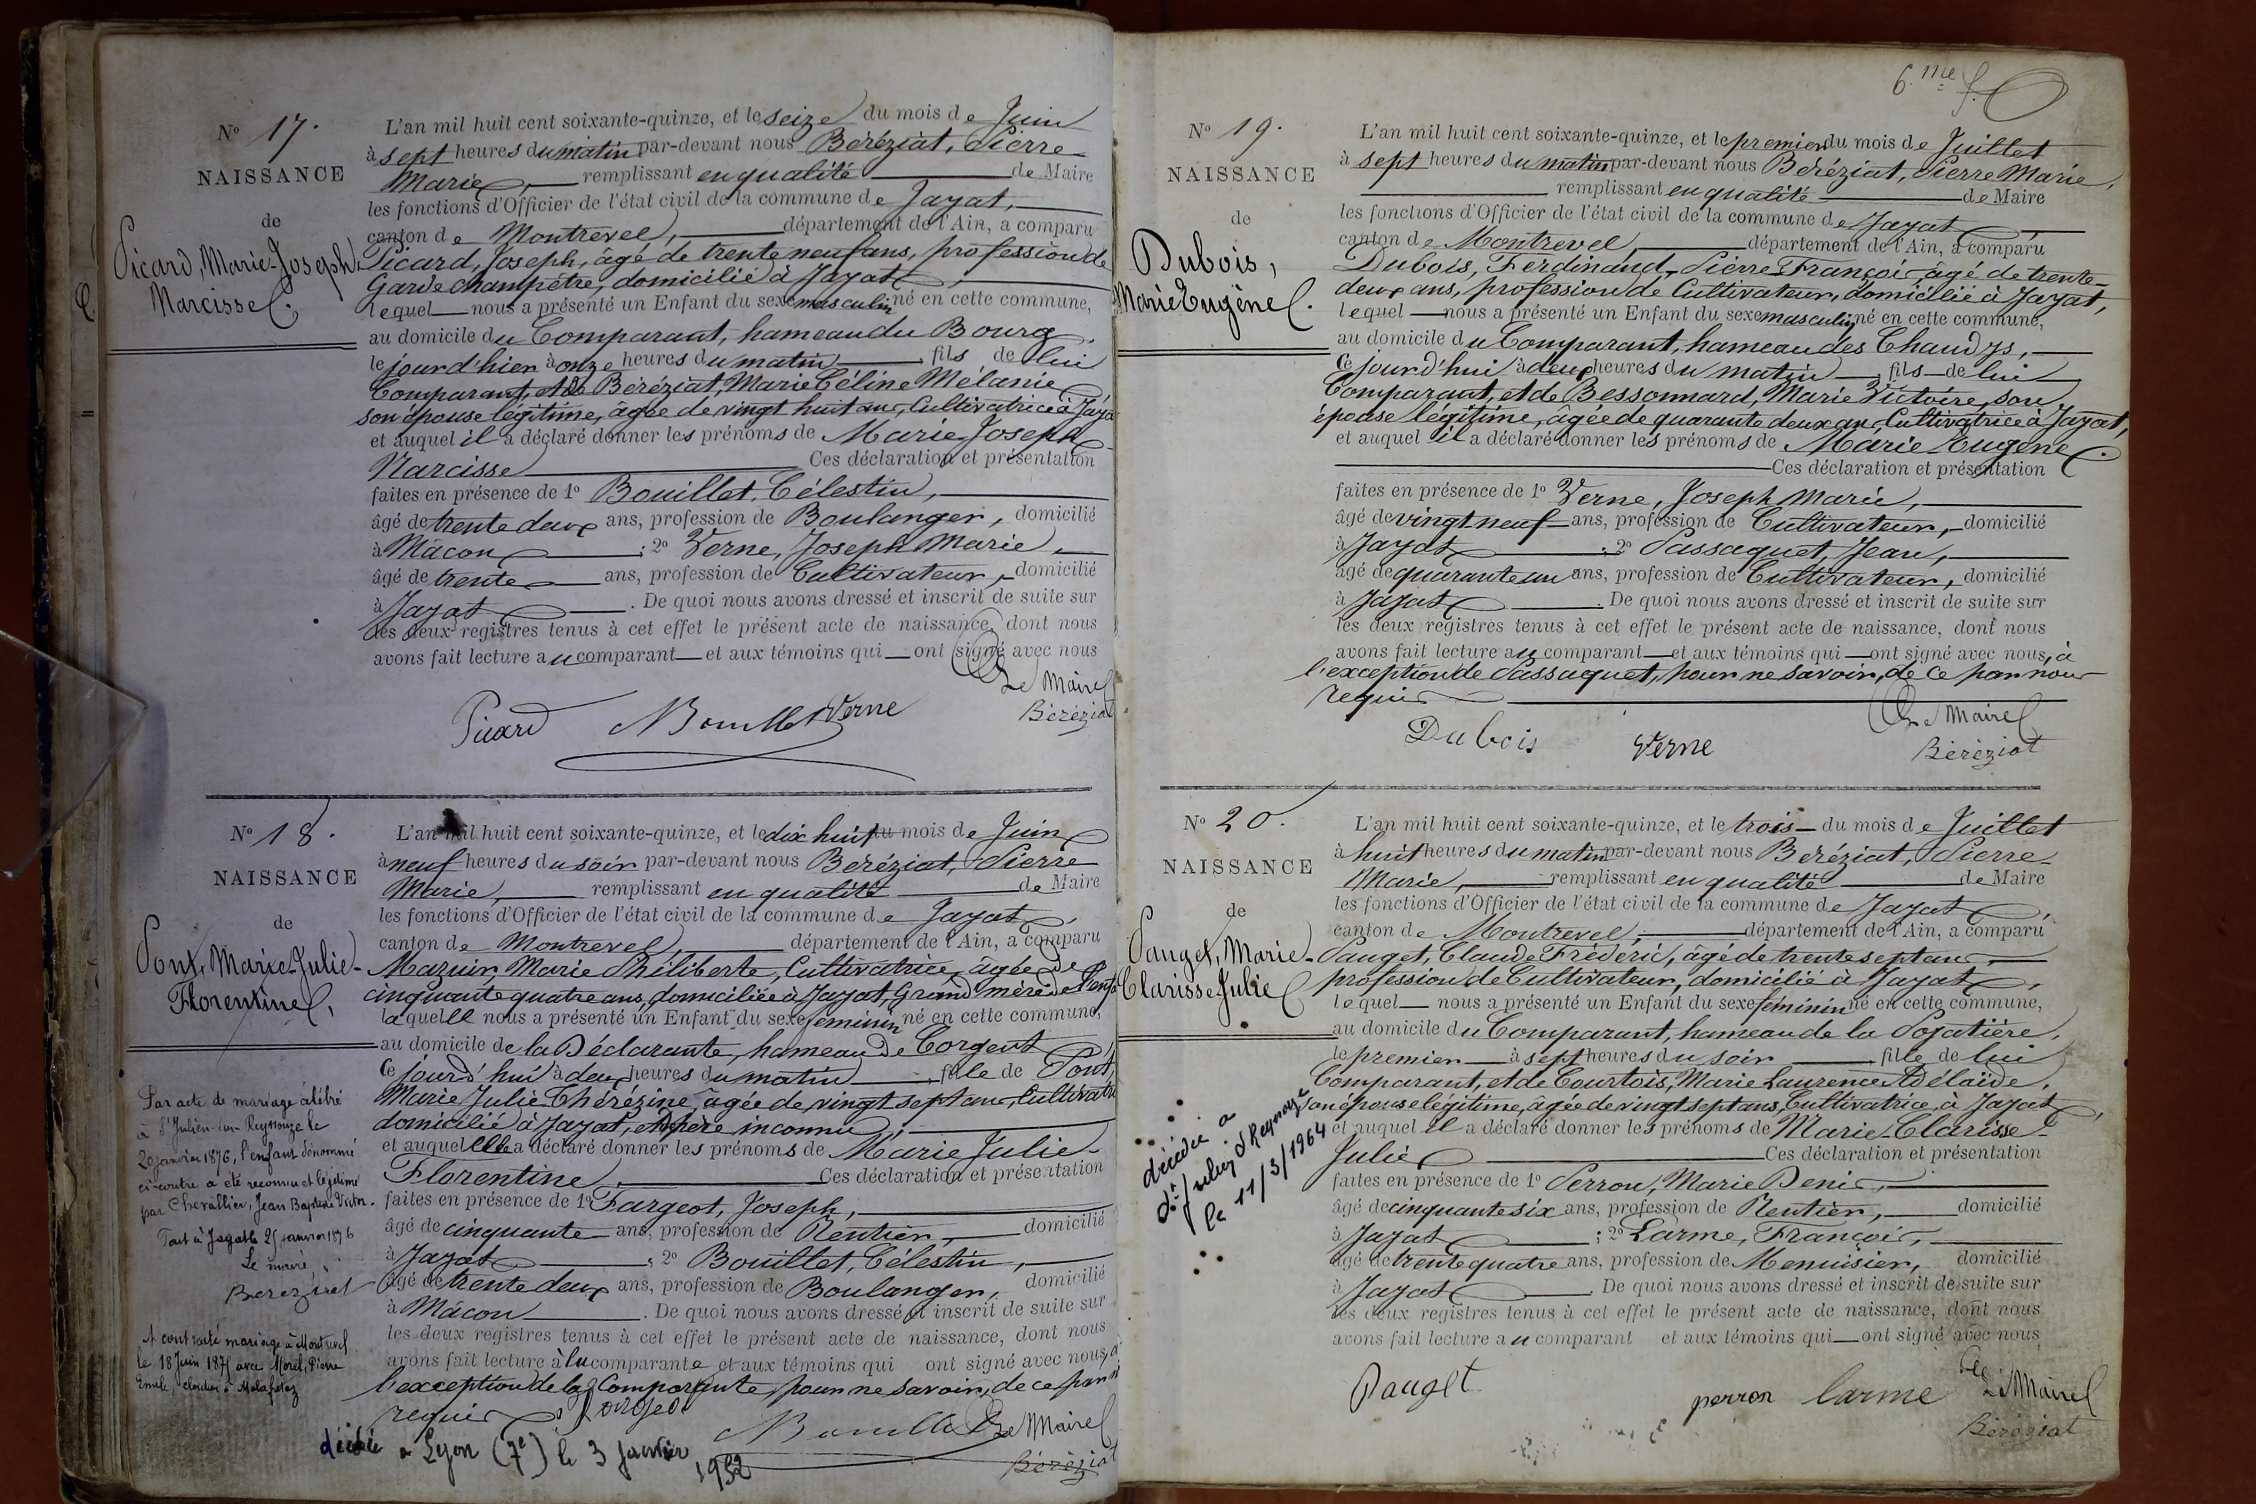 N° 17.
NAISSANCE
de
Picard, Marie-Joseph-
Narcisse.
L'an mil huit cent soixante-quinze, et le seize du mois de Juin
à sept heures du matin par-devant nous Béréziat, Pierre
Marie, remplissant en qualité de Maire
les fonctions d'Officier de l'état civil de la commune de Jayat,
canton de Montrevel, département de l'Ain, a comparu
Picard, Joseph, âgé de trente neuf ans, profession de
Garde champêtre, domicilié à Jayat,
lequel nous a présenté un Enfant du sexe masculin né en cette commune,
au domicile du Comparant, hameau du Bourg,
le jour d'hier à onze heures du matin, fils de lui
Comparant, et de Béréziat, Marie Céline Mélanie
son épouse légitime, âgée de vingt huit ans, Cultivatrice à Jayat
et auquel il a déclaré donner les prénoms de Marie-Joseph-
Narcisse Ces déclaration et présentation
faites en présence de 1° Bouillet, Célestin,
âgé de trente deux ans, profession de Boulanger, domicilié
à Mâcon ; 2° Verne, Joseph Marie,
âgé de trente ans, profession de Cultivateur, domicilié
à Jayat. De quoi nous avons dressé et inscrit de suite sur
les deux registres tenus à cet effet le présent acte de naissance, dont nous
avons fait lecture au comparant et aux témoins qui ont signé avec nous
Le Maire
Picard Bouillet Verne Béréziat
N° 18.
NAISSANCE
de
Pont, Marie-Julie-
Florentine,
L'an mil huit cent soixante-quinze, et le dix huit du mois de Juin
à neuf heures du soir par-devant nous Béréziat, Pierre
Marie, remplissant en qualité de Maire
les fonctions d'Officier de l'état civil de la commune de Jayat,
canton de Montrevel, département de l'Ain, a comparu
Mazuir, Marie Philiberte, Cultivatrice, âgée de
cinquante quatre ans, domiciliée à Jayat, Grand'mère de l'enfant
laquelle nous a présenté un Enfant du sexe féminin né en cette commune,
au domicile de la Déclarante, hameau de Corgent
Ce jourd'hui à deux heures du matin, fille de Pont,
Marie Julie Thérézine, âgée de vingt sept ans, Cultivatrice
domicilié à Jayat, et père inconnu,
et auquel elle a déclaré donner les prénoms de Marie Julie-
Florentine, Ces déclaration et présentation
faites en présence de 1° Fargeot, Joseph,
âgé de cinquante ans, profession de Rentier, domicilié
à Jayat ; 2° Bouillet, Célestin,
âgé de trente deux ans, profession de Boulanger, domicilié
à Mâcon. De quoi nous avons dressé et inscrit de suite sur
les deux registres tenus à cet effet le présent acte de naissance, dont nous
avons fait lecture à la comparante et aux témoins qui ont signé avec nous, à
l'exception de la Comparante, pour ne savoir, de ce par n
requis
Fargeot Bouillet Le Maire
Béréziat
Par acte de mariage célébré
à St Julien-sur-Reyssouze le
20 janvier 1876, l'enfant dénommé
ci-contre a été reconnu et légitimé
par Chevallier, Jean Baptiste
Fait à Jayat le 25 janvier 1876
Le maire
Béréziat
A contracté mariage à Montrevel
le 18 Juin avec Morel, Pierre
Emile, à Malafretaz
décédée à Lyon (7e) le 3 janvier
1952
6.me f.
N° 19.
NAISSANCE
de
Dubois,
Marie Eugène.
L'an mil huit cent soixante-quinze, et le premier du mois de Juillet
à sept heures du matin par-devant nous Béréziat, Pierre Marie,
remplissant en qualité de Maire
les fonctions d'Officier de l'état civil de la commune de Jayat,
canton de Montrevel, département de l'Ain, a comparu
Dubois, Ferdinand, Pierre François, âgé de trente-
deux ans, profession de Cultivateur, domicilié à Jayat,
lequel nous a présenté un Enfant du sexe masculin né en cette commune,
au domicile du Comparant, hameau des Chaudys,
Ce jourd'hui à deux heures du matin, fils de lui
Comparant, et de Bessonnard, Marie Victoire, son
épouse légitime, âgée de quarante deux ans, Cultivatrice à Jayat,
et auquel il a déclaré donner les prénoms de Marie Eugène.
Ces déclaration et présentation
faites en présence de 1° Verne, Joseph Marie,
âgé de vingt neuf ans, profession de Cultivateur, domicilié
à Jayat ; 2° Passaquet, Jean,
âgé de quarante un ans, profession de Cultivateur, domicilié
à Jayat. De quoi nous avons dressé et inscrit de suite sur
les deux registres tenus à cet effet le présent acte de naissance, dont nous
avons fait lecture au comparant et aux témoins qui ont signé avec nous, à
l'exception de Passaquet, pour ne savoir, de ce par nous
requis
Le Maire
Dubois Verne Béréziat
N° 20.
NAISSANCE
de
Pauget, Marie-
Clarisse Julie
L'an mil huit cent soixante-quinze, et le trois du mois de Juillet
à huit heures du matin par-devant nous Béréziat, Pierre-
Marie, remplissant en qualité de Maire
les fonctions d'Officier de l'état civil de la commune de Jayat,
canton de Montrevel, département de l'Ain, a comparu
Pauget, Claude Frédéric, âgé de trente sept ans,
profession de Cultivateur, domicilié à Jayat,
lequel nous a présenté un Enfant du sexe féminin né en cette commune,
au domicile du Comparant, hameau de la Pojatière,
le premier à sept heures du soir, fille de lui
Comparant, et de Courtois, Marie Laurence Adélaïde,
son épouse légitime, âgée de vingt sept ans, Cultivatrice, à Jayat,
et auquel il a déclaré donner les prénoms de Marie-Clarisse-
Julie Ces déclaration et présentation
faites en présence de 1° Perron, Marie Denis,
âgé de cinquante six ans, profession de Rentier, domicilié
à Jayat ; 2° Larme, François,
âgé de trente quatre ans, profession de Menuisier, domicilié
à Jayat. De quoi nous avons dressé et inscrit de suite sur
les deux registres tenus à cet effet le présent acte de naissance, dont nous
avons fait lecture au comparant et aux témoins qui ont signé avec nous
Pauget perron larme Le Maire
Béréziat
décédée à
St Julien s/ Reyssouze
le 11/3/1964